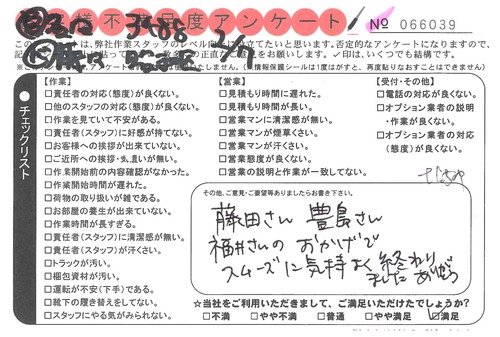 不満足度アンケート
No 066039
チェックリスト
【作業】
□責任者の対応(態度)が良くない。
□他のスタッフの対応(態度)が良くない。
□作業を見ていて不安がある。
□責任者(スタッフ)に好感が持てない。
□お客様への挨拶が出来ていない。
□ご近所への挨拶・気遣いが無い。
□作業開始前の内容確認がなかった。
□作業開始時間が遅れた。
□荷物の取り扱いが雑である。
□お部屋の養生が出来ていない。
□作業時間が長すぎる。
□責任者(スタッフ)に清潔感が無い。
□責任者(スタッフ)が汗くさい。
□トラックが汚い。
□梱包資材が汚い。
□運転が不安(下手)である。
□靴下の履き替えをしてない。
□スタッフにやる気がみられない。
【営業】
□見積もり時間に遅れた。
□見積もり時間が長い。
□営業マンに清潔感が無い。
□営業マンが煙草くさい。
□営業マンが汗くさい。
□営業態度が良くない。
□営業の説明と作業が一致してない。
【受付・その他】
□電話の対応が良くない。
□オプション業者の説明
・作業が良くない。
□オプション業者の対応
(態度)が良くない。
その他、ご意見・ご要望等ありましたらお書き下さい。
藤田さん 豊島さん
福井さんの おかげで
スムーズに気持よく終わり
ました ありがとう
☆当社をご利用いただきまして、ご満足いただけたでしょうか?
□不満 □やや不満 □普通 □やや満足 □満足